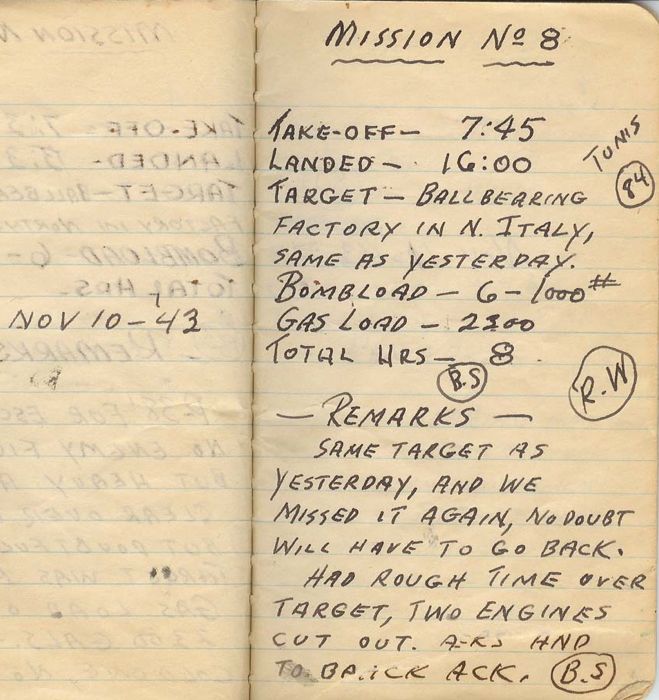 MISSION No 8
TAKE-OFF— 7:45
LANDED— 16:00
TUNIS
84
TARGET— BALLBEARING
FACTORY IN N. ITALY,
SAME AS YESTERDAY.
BOMBLOAD— 6-1000#
NOV 10-43
GAS LOAD— 2300
TOTAL HRS— 8
B.S
R.W
— REMARKS —
SAME TARGET AS
YESTERDAY, AND WE
MISSED IT AGAIN, NO DOUBT
WILL HAVE TO GO BACK.
HAD ROUGH TIME OVER
TARGET, TWO ENGINES
CUT OUT.
TO ACK. B.S